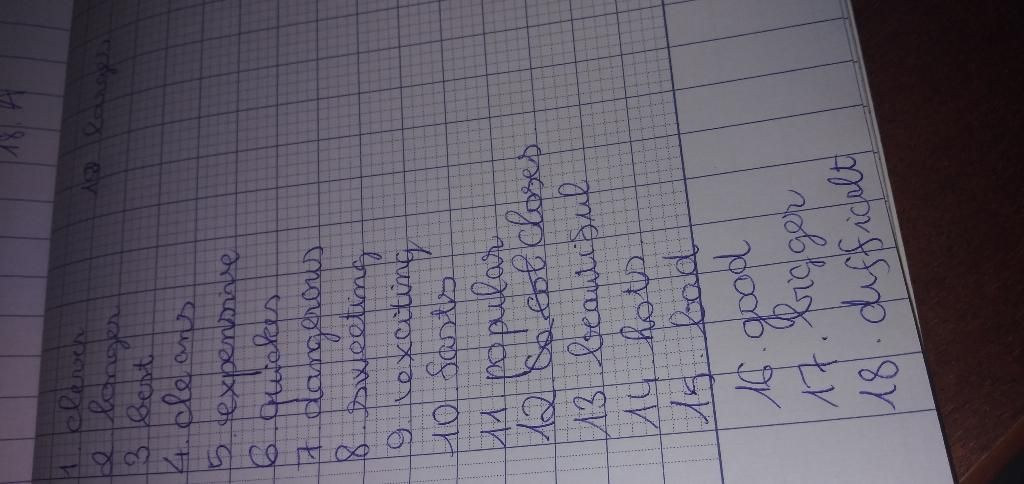 2. longer
3 best
4. cleans
5. expensive
6 quicker
7 dangerous
8. sweeting
9. exciting
10 fasts
11 popular
12 closes
13 beautiful
14 hots
15 bad
16. good
17. bigger
18. difficult
18.